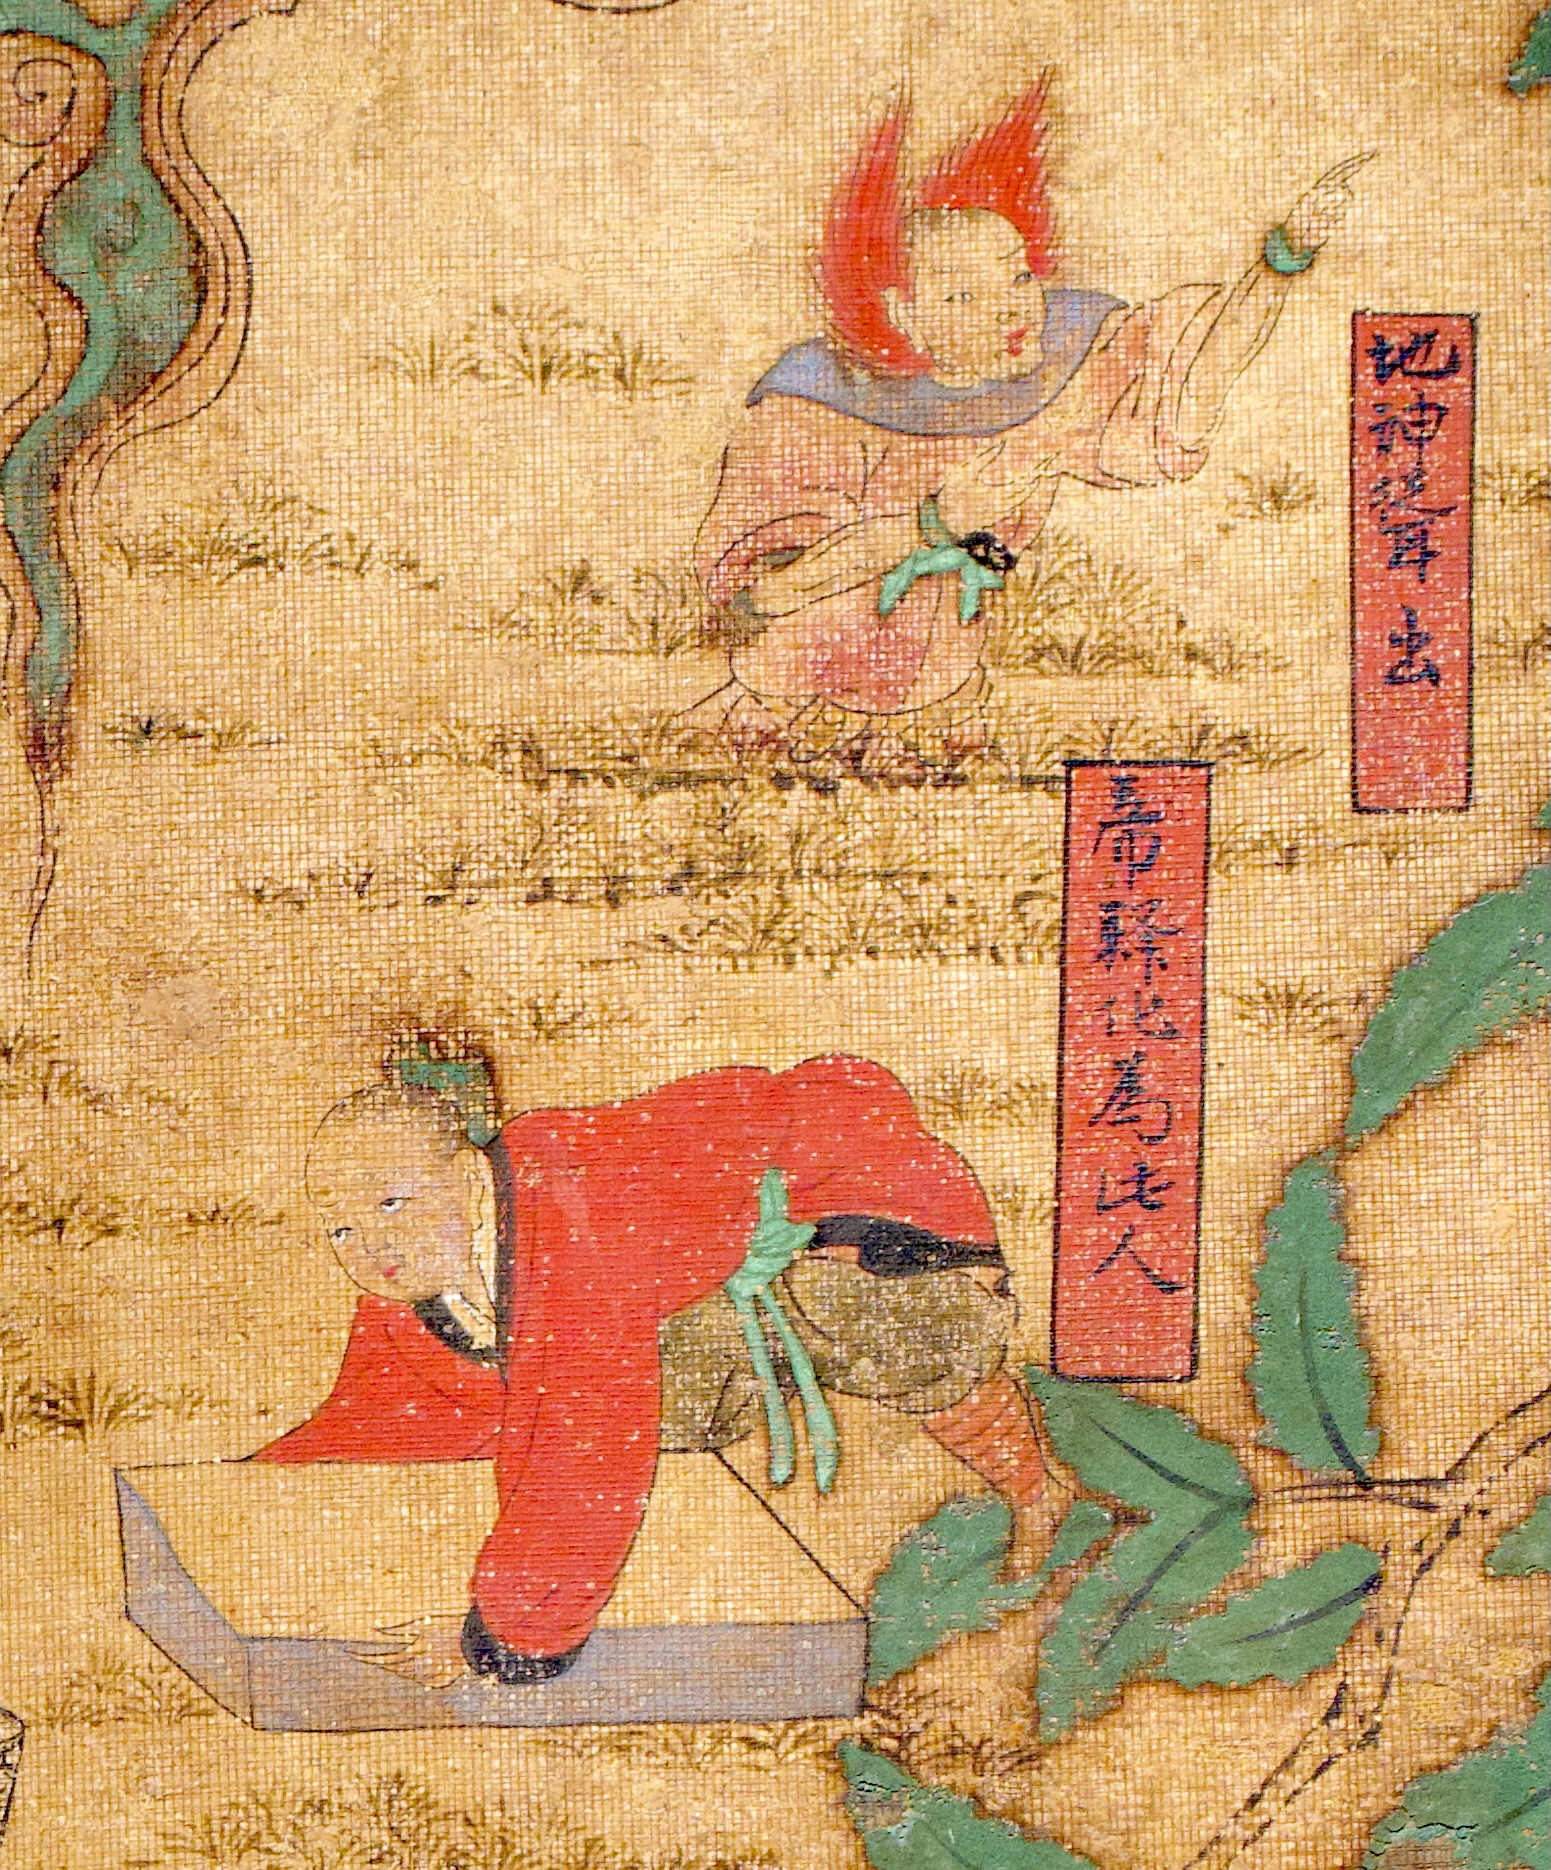 地神聳出
帝釋化為此人